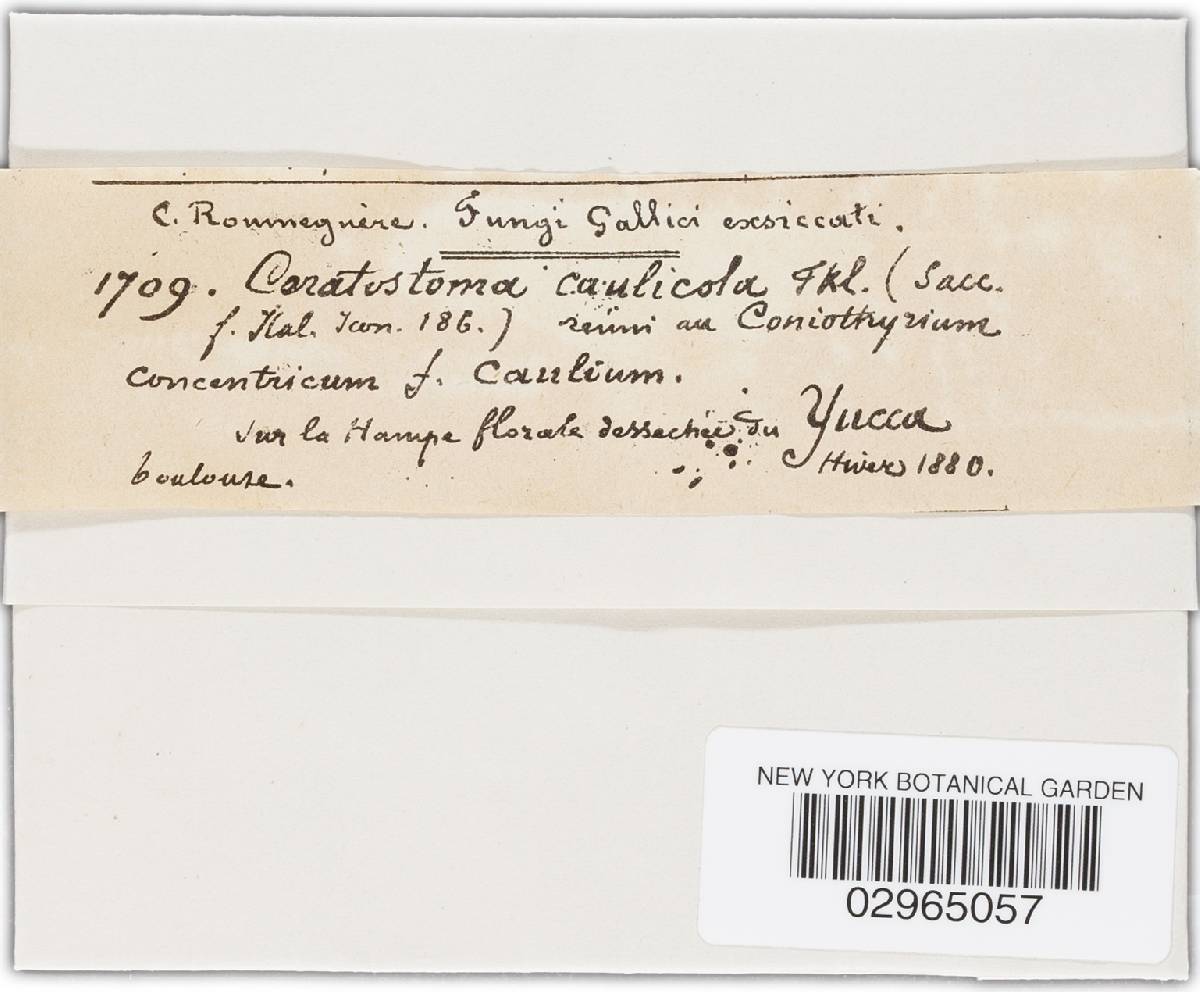 C. Roumeguère. Fungi Gallici exsiccati.
1709. Ceratostoma caulicola Fkl. (Sacc.
f. Ital. Icon. 186.) réuni au Coniothyrium
concentricum f. Caulium.
Sur la Hampe florale dessechée du Yucca
Toulouse. Hiver 1880.
NEW YORK BOTANICAL GARDEN
02965057